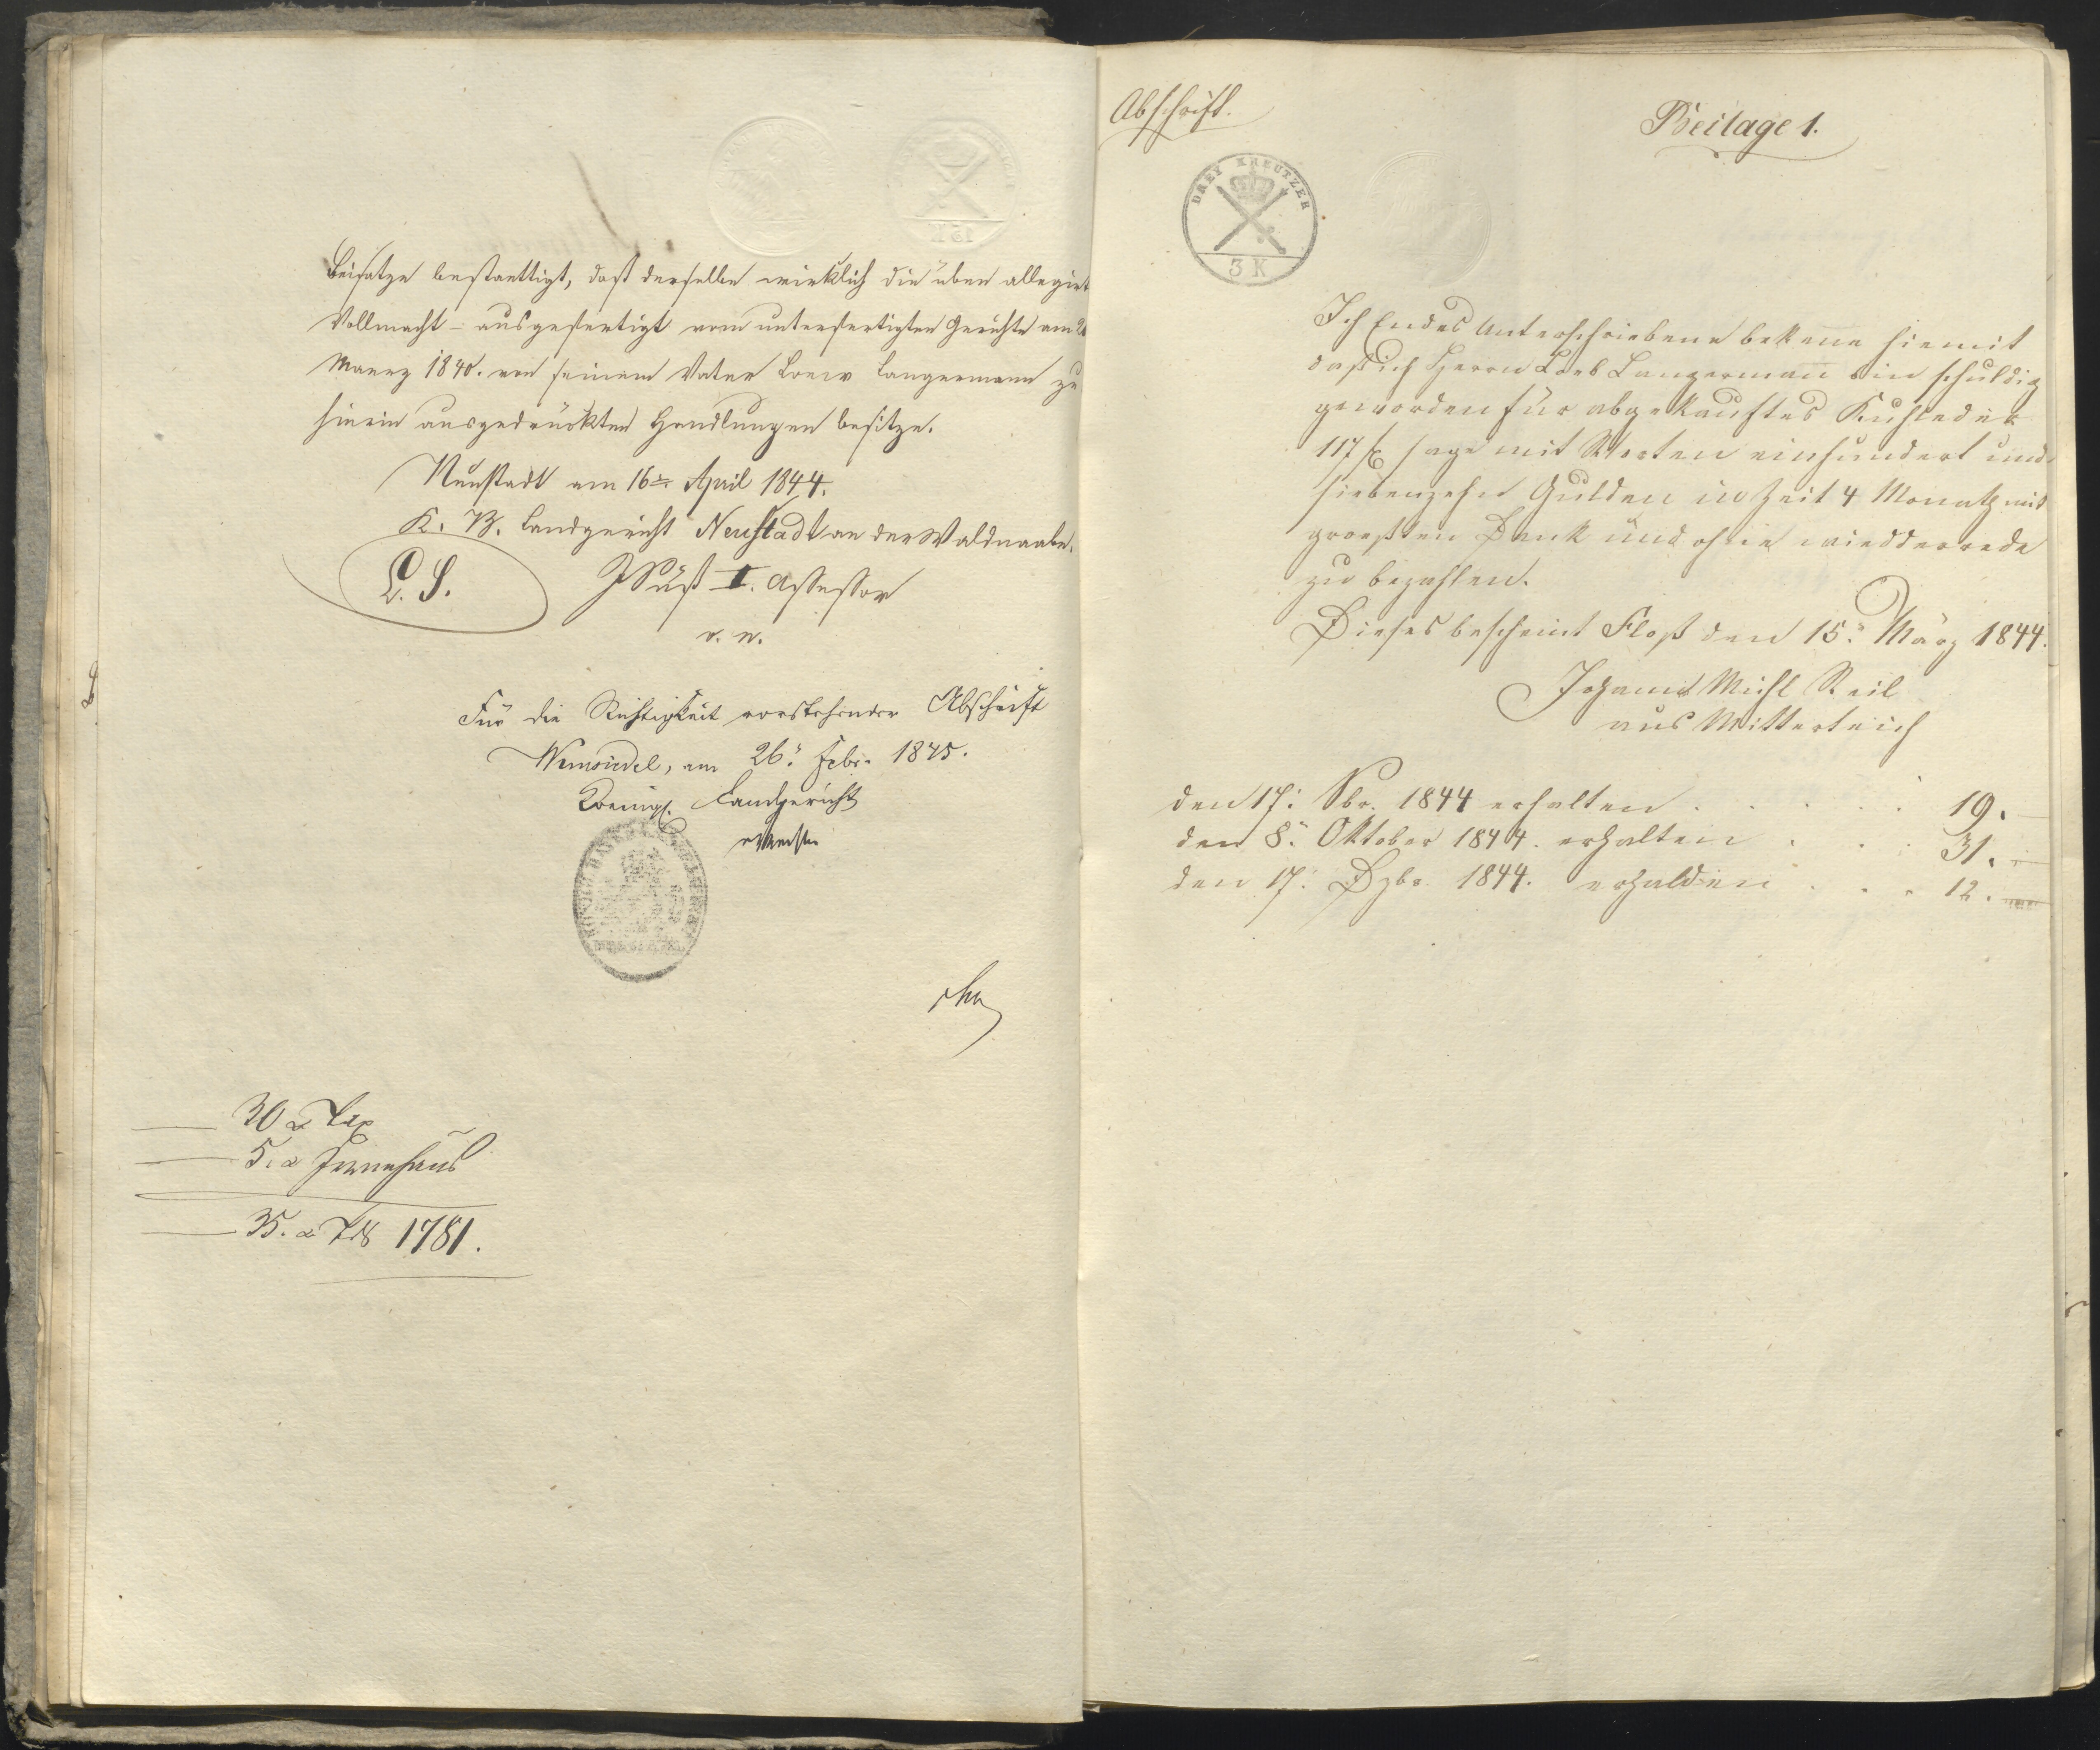 Beisatze bestaettigt, daß derselbe wirklich die oben allegirt
Vollmacht – ausgefertigt vom unterfertigten Gerichte am
Maerz 1840. von seinem Vater Loew Langermann zu
hierin ausgedrückten Handlungen besitze.
Neustadt am 16ten April 1844.
K. B. Landgericht Neustadt an der Waldnaabe.
L. S. Süß II. Assessor
v. n.
Für die Richtigkeit vorstehender Abschrift
am 26. Febr. 1845.
Koenigl. Landgericht
30 x Tax
5. x
35. x 1781.
Abschrift.
Beilage 1.
DREY KREUTZER
3 K
Ich Endes Unterschriebene bekenne hiemit
daß ich Herrn Loeb Langermann bin schuldig
geworden für abgekauftes Kuhleder
117 f sage mit Worten einhundert und
siebenzehn Gulden in Zeit 4 Monath mit
groesten Dank und ohne wiedderrede
zu bezahlen.
Dieses bescheint Floß den 15. März 1844.
Johann Michl Keil
aus Mitterteich
den 17. 8br. 1844 erhalten . . . . . 19. —
den 8. Oktober 1844. erhalten . . . 31. —
den 17. Dzbr. 1844. erhalden . . . 12. —